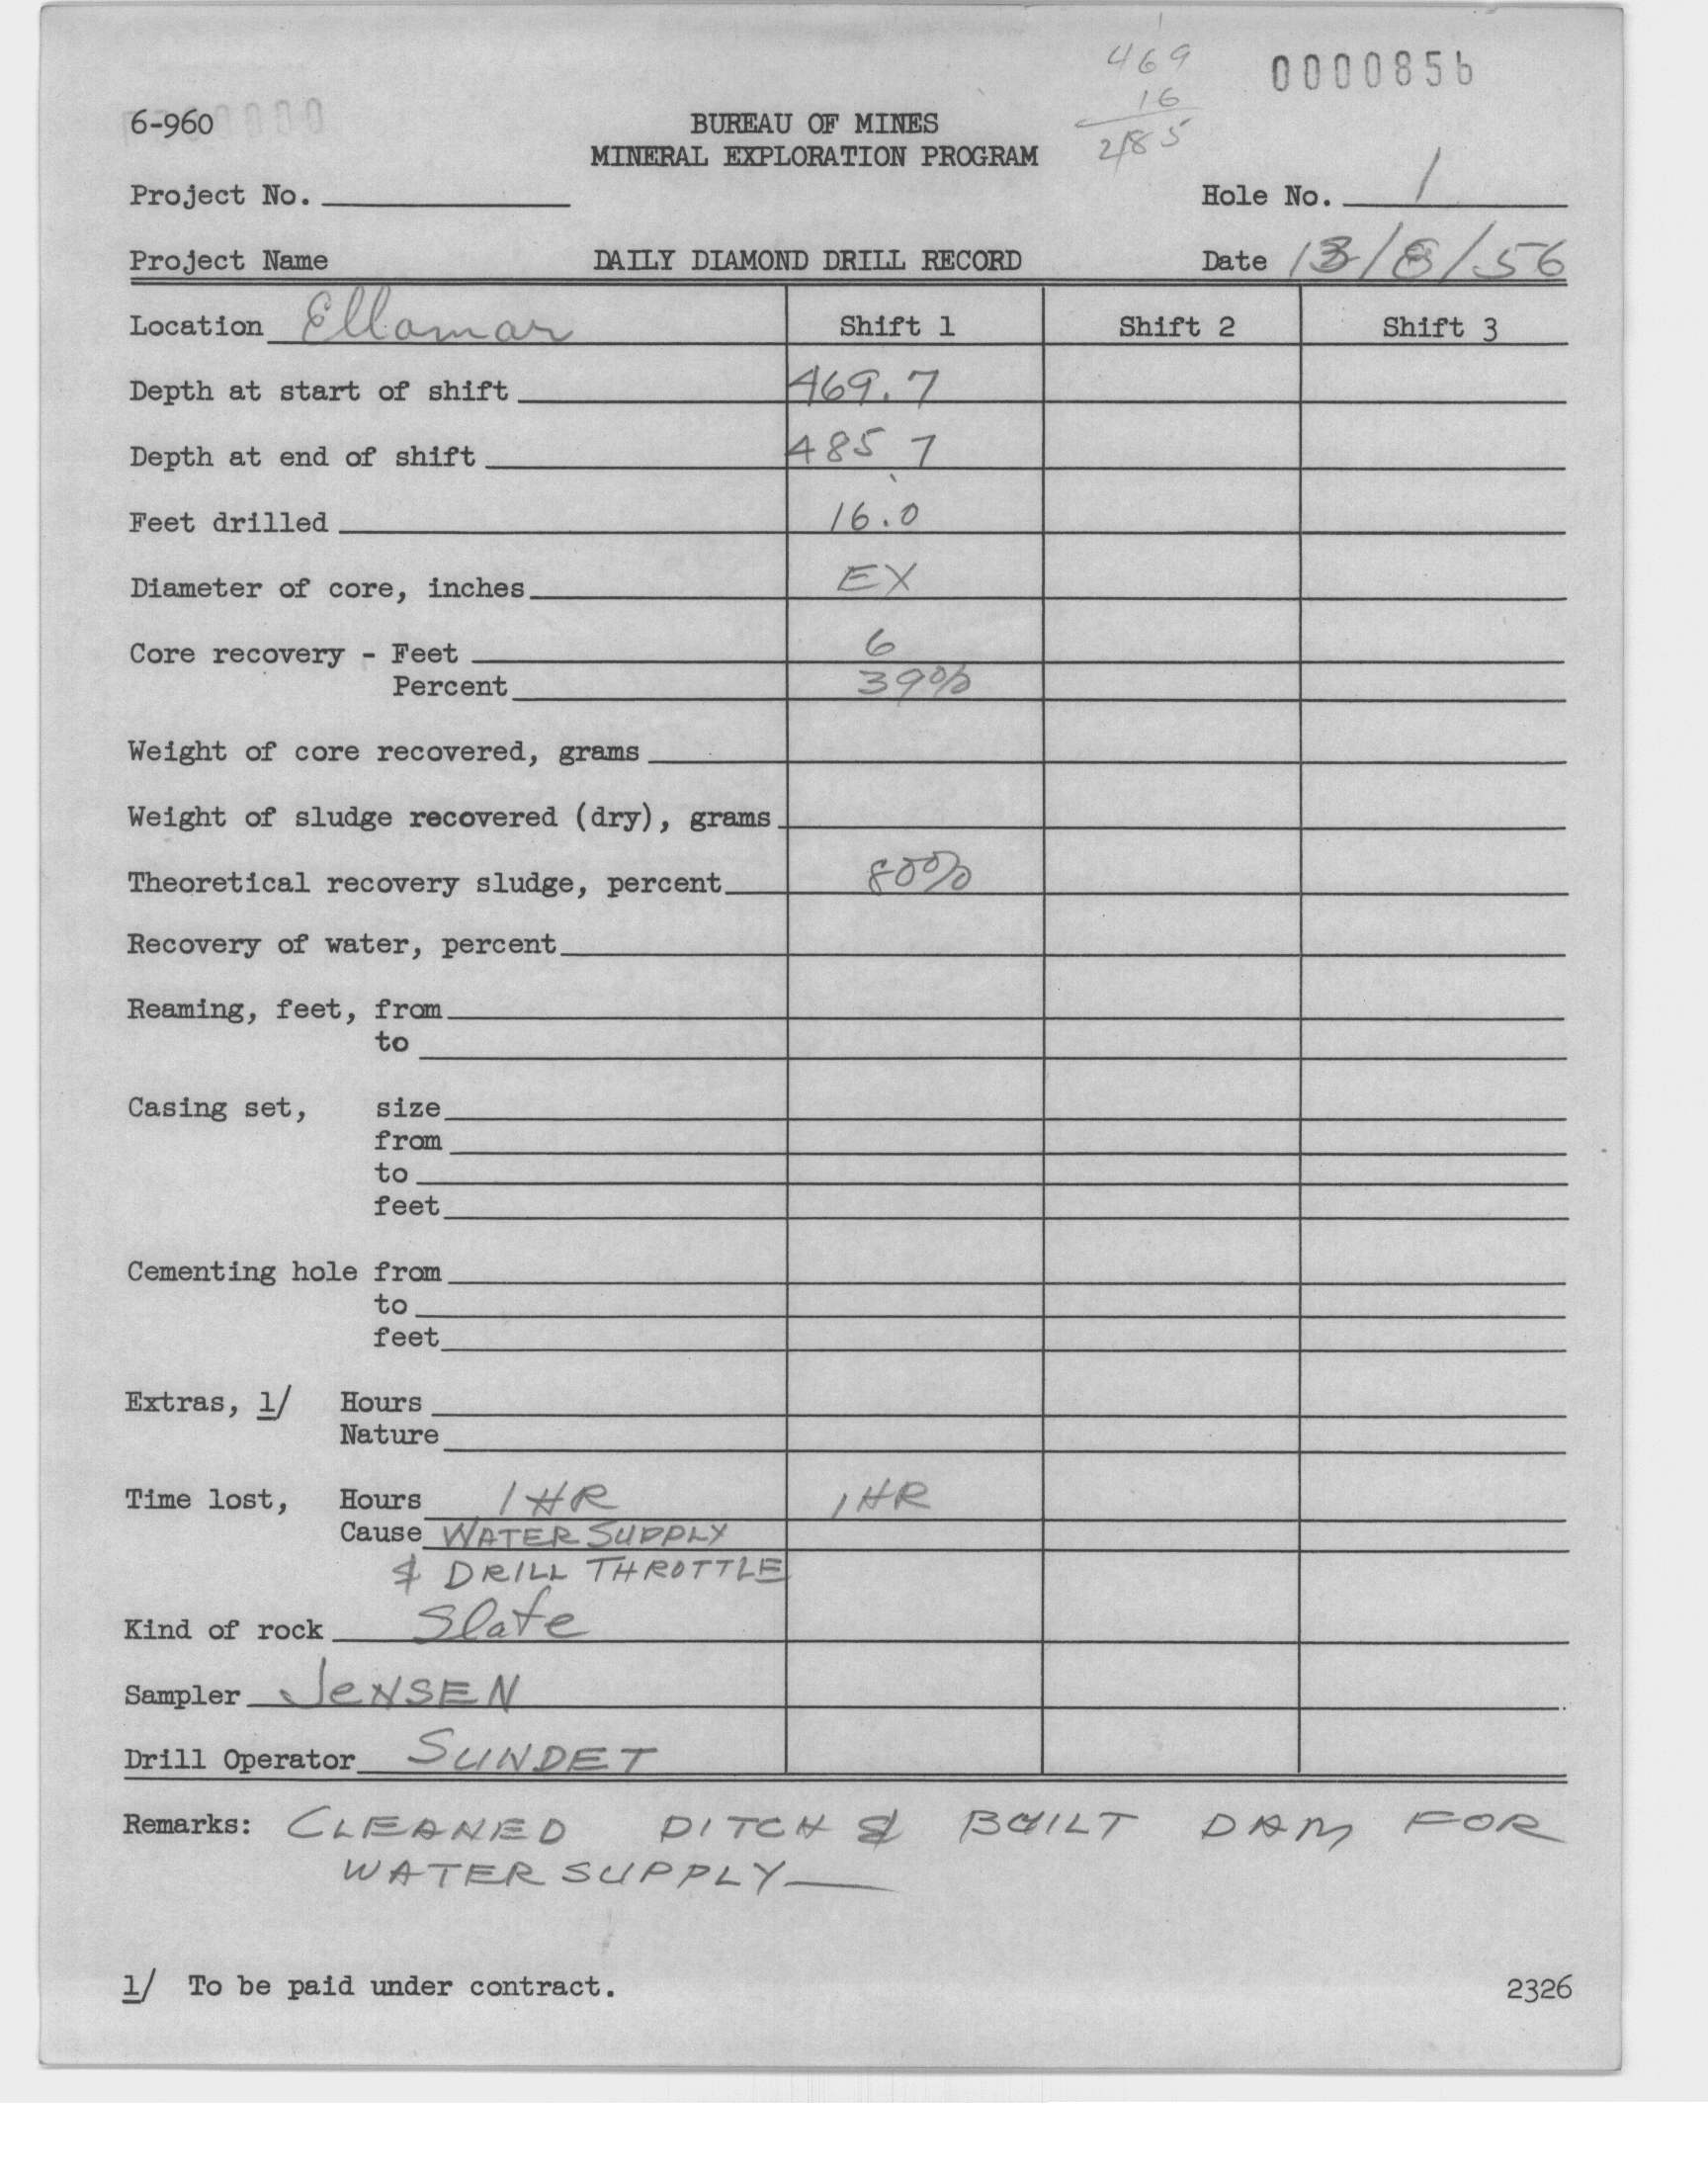 469
16
485
0000856
6-960
BUREAU OF MINES
MINERAL EXPLORATION PROGRAM
Project No.
Hole No. 1
Project Name DAILY DIAMOND DRILL RECORD Date 13/8/56
Location Ellamar Shift 1 Shift 2 Shift 3
Depth at start of shift 469.7
Depth at end of shift 485.7
Feet drilled 16.0
Diameter of core, inches EX
Core recovery - Feet 6
Percent 39%
Weight of core recovered, grams
Weight of sludge recovered (dry), grams
Theoretical recovery sludge, percent 80%
Recovery of water, percent
Reaming, feet, from
to
Casing set, size
from
to
feet
Cementing hole from
to
feet
Extras, 1/ Hours
Nature
Time lost, Hours 1 HR 1 HR
Cause WATER SUPPLY
& DRILL THROTTLE
Kind of rock Slate
Sampler JENSEN
Drill Operator SUNDET
Remarks: CLEANED DITCH & BUILT DAM FOR
WATER SUPPLY
1/ To be paid under contract.
2326